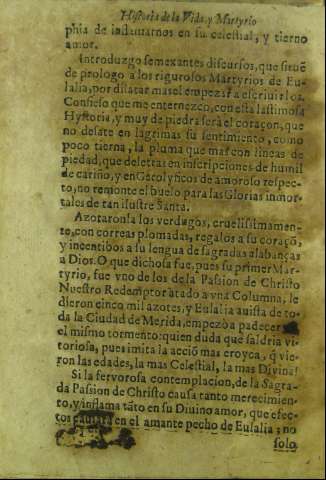 Historia de la Vida, y Martyrio
phia de inflamarnos en su celestial, y tierno
amor.
Introduzgo semexantes discursos, que siruē
de prologo a los rigurosos Martyrios de Eu-
lalia, por dilatar mas el empezar a escriuirlos.
Confieso que me enternezco, con esta lastimosa
Hystoria, y muy de piedra serà el coraçon, que
no desate en lagrimas su sentimiento, como
poco tierna, la pluma que mas con lineas de
piedad, que de letras en inscripciones de humil
de cariño, y en Gerolyficos de amoroso respec-
to, no remonte el buelo para las Glorias inmor-
tales de tan ilustre Santa.
Azotaronla los verdugos, cruelissimamen-
te, con correas plomadas, regalos a su coraçõ,
y incentibos a su lengua de sagradas alabanças
a Dios. O que dichosa fue, pues su primer Mar-
tyrio, fue vno de los de la Passion de Christo
Nuestro Redemptor! atado a vna Columna, le
dieron cinco mil azotes, y Eulalia a vista de to-
da la Ciudad de Merida, empezò a padecer
el mismo tormento: quien duda que saldria vi-
toriosa, pues imita la acciõ mas eroyca, q̃ vie-
ron las edades, la mas Celestial, la mas Diuina!
Si la feruorosa contemplacion, de la Sagra-
da Passion de Christo causa tanto merecimien-
to, y inflama tãto en su Diuino amor, que efec-
tos causara en el amante pecho de Eulalia; no
solo